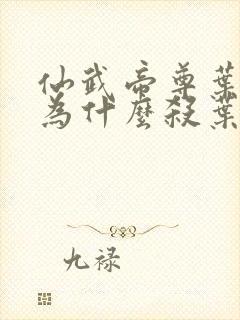 仙武帝尊葉
為什麼殺葉
九禄